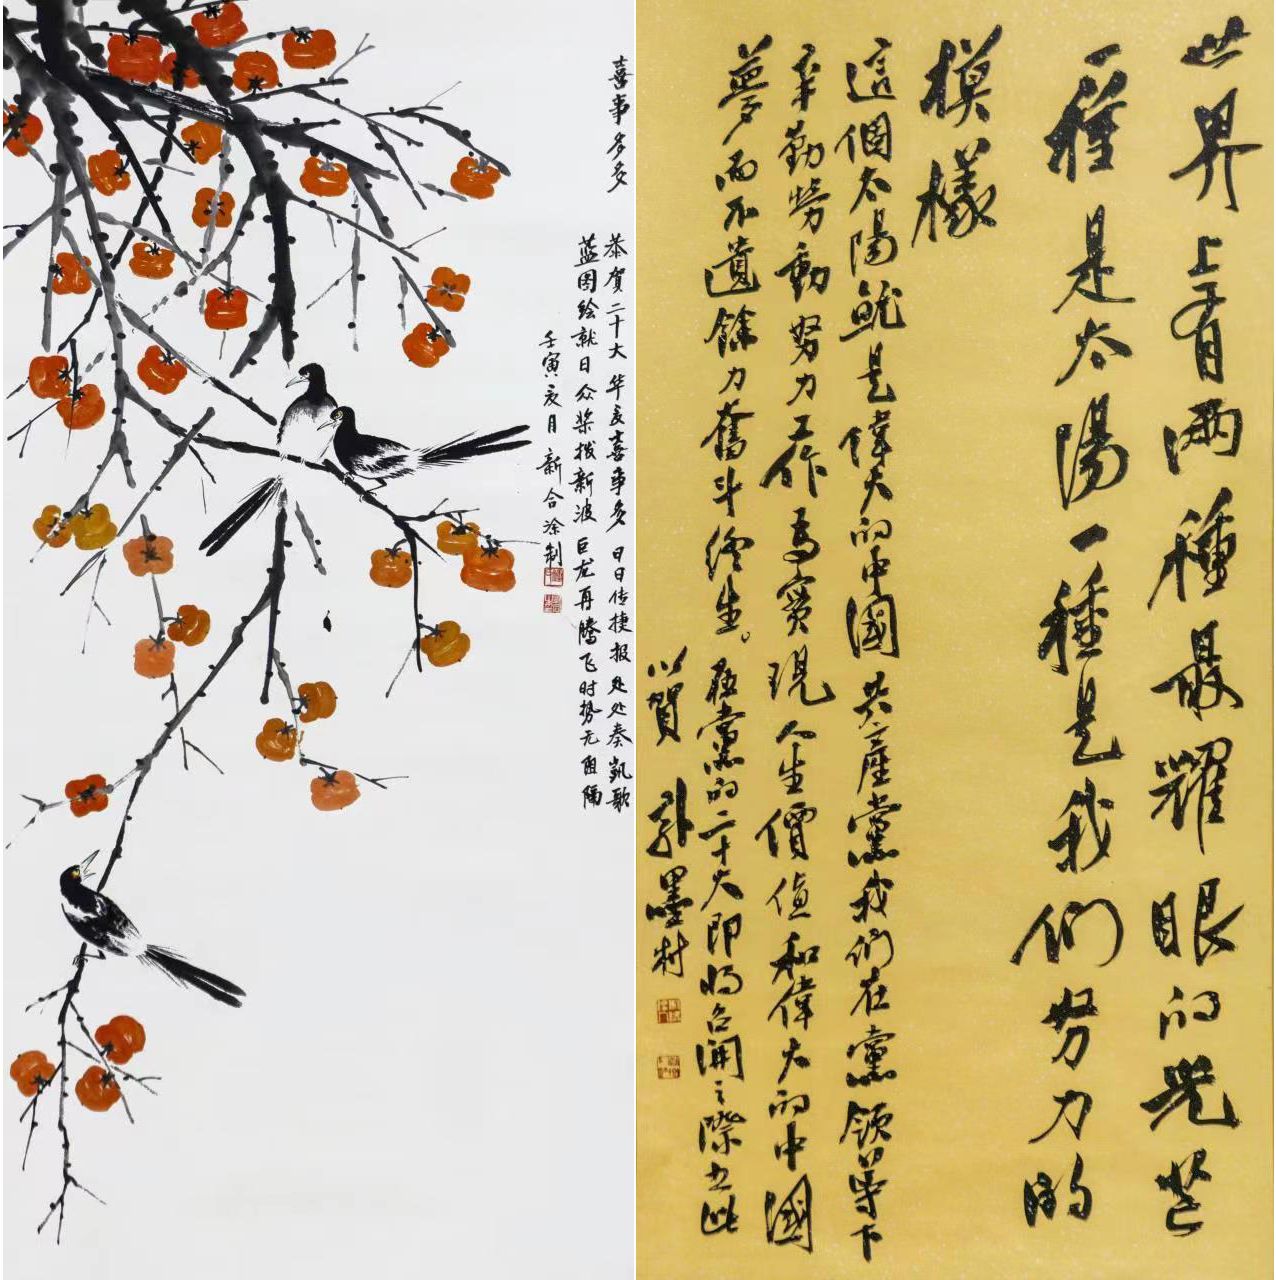 喜事多多
恭贺二十大 华夏喜事多 日日传捷报 处处奏凯歌
蓝图绘就日 众桨拨新波 巨龙再腾飞 时势无阻隔
壬寅亥月 新合涂制
世界上有兩種最耀眼的光芒
一種是太陽一種是我們努力的
模樣
這個太陽就是偉大的中國共産黨我們在黨領導下
辛勤勞動努力工作為實現人生價值和偉大的中國
夢而不遺餘力奮斗終生。在黨的二十大即将召開之際書此
以賀 墨村